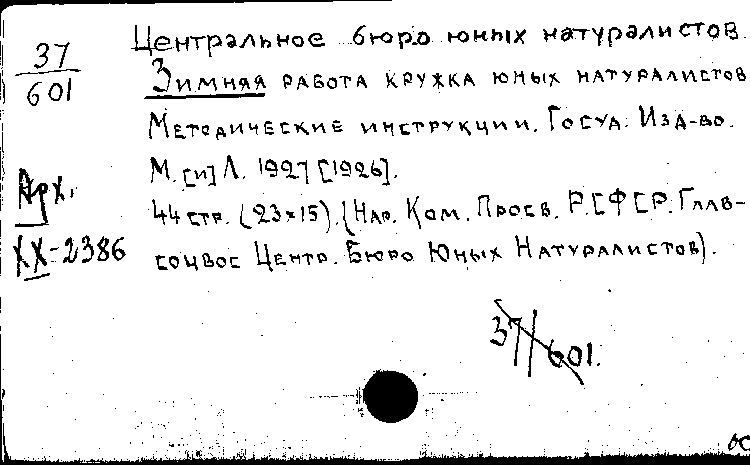 37
601
Центральное бюро юных натуралистов.
Зимняя работа кружка юных натуралистов
Методические инструкции. Госуд. Изд-во.
М. [и] Л. 1927 [1926].
44 стр. (23×15). (Нар. Ком. Просв. Р.С.Ф.С.Р. Глав-
соцвос Центр. Бюро Юных Натуралистов).
Арх.
XX-2386
37/601.